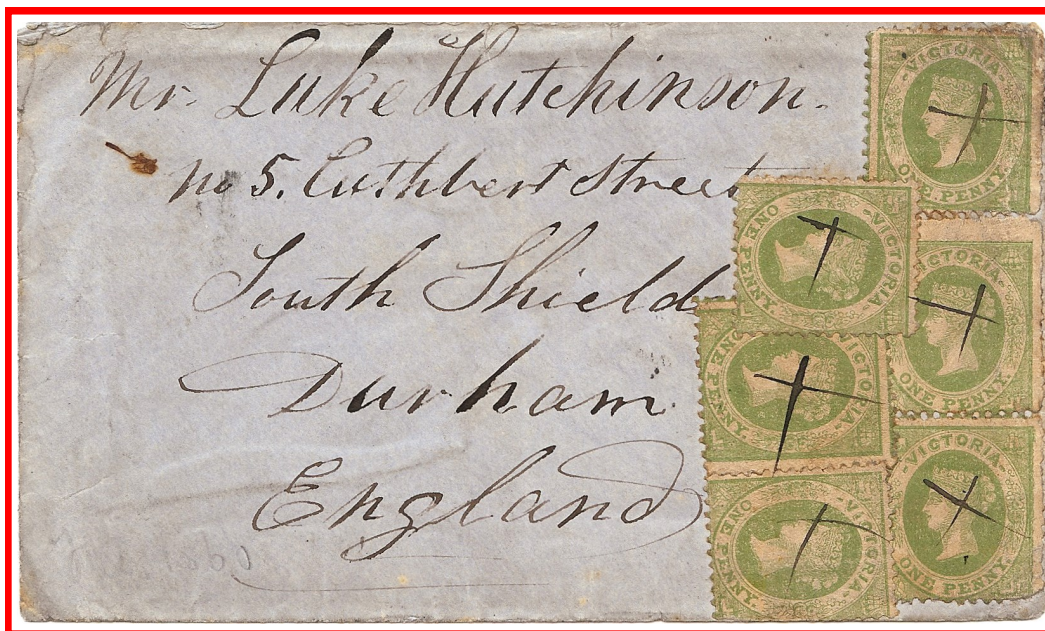 Mr. Luke Hutchinson.
No 5. Cuthbert Street
South Shield
Durham
England
VICTORIA
ONE PENNY.
VICTORIA
ONE PENNY
VICTORIA
ONE PENNY.
VICTORIA
ONE PENNY.
VICTORIA
ONE PENNY.
VICTORIA
ONE PENNY.